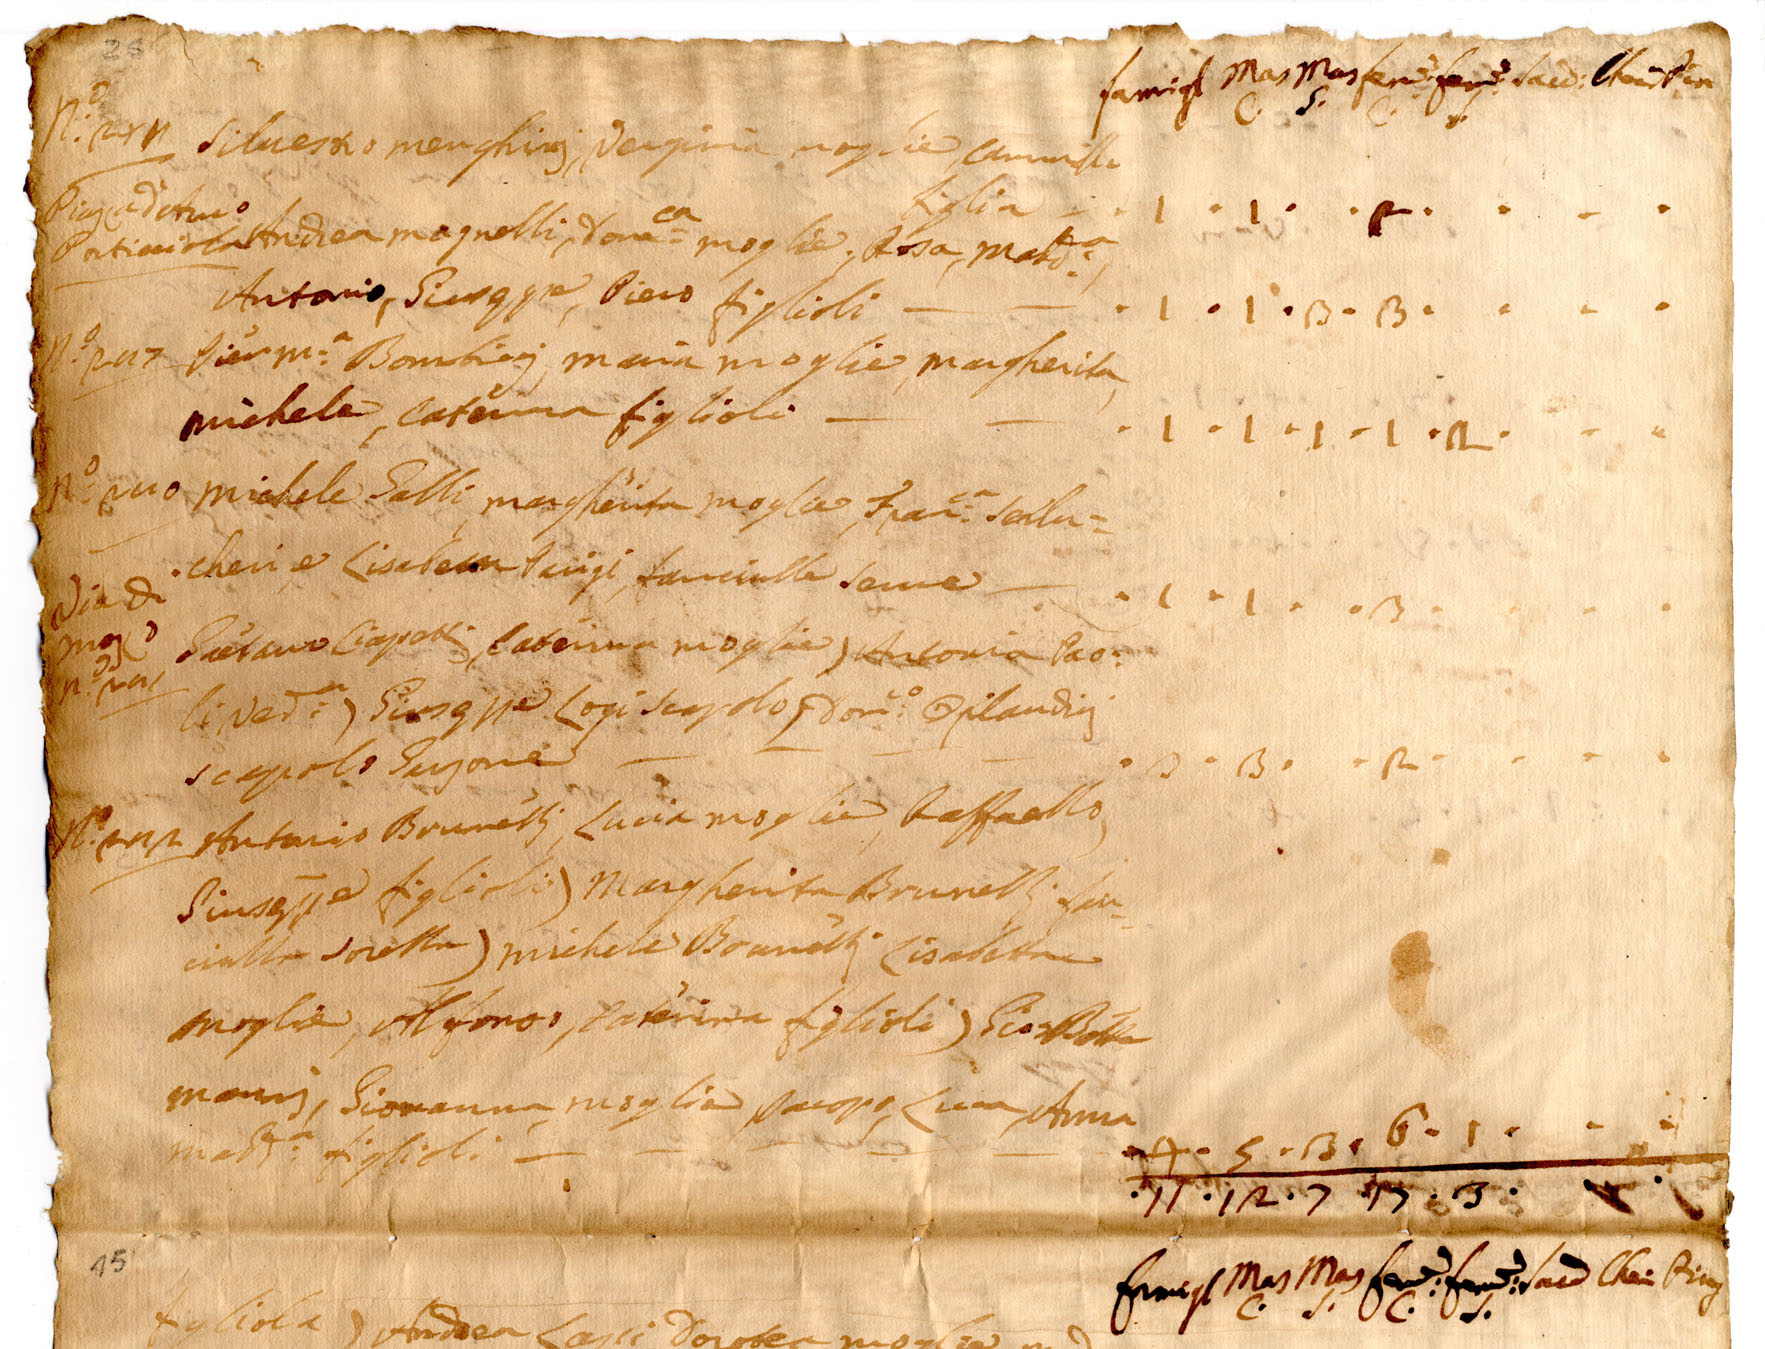 28
famigl Mas Mas fem: fem: Sacd: Cher Pin
C. S. C. S.
N.o
Silvestro menghinj, Verginia moglie, Cammilla
figlia — . 1 . 1 . . 2 . . . .
Piazza di
Andrea magnelli, Dom.ca moglie, Rosa, Madd.a,
Antonio, Giuseppe, Piero figlioli — — . 1 . 1 . 3 . 3 . . . .
N.o Pier m.a Bombiccj, maria moglie, margherita,
michele, Caterina figlioli — — . 1 . 1 . 1 . 1 . 2 . . .
N.o michele Galli, margherita moglie, Fran.ca
cheri, e Lisabetta Parigi, fanciulle serve — . 1 . 1 . . 3 . . . .
Via di
Gaetano Ciapettj, Caterina moglie) Antonia Pao=
N.o
li Ved.a) Giuseppe Logi scapolo, Dom.o
scapolo Garzone — — — . 3 . 3 . . 2 . . . .
N.o Antonio Brunettj, Lucia moglie, Raffaello,
Giuseppe figlioli) Margherita Brunettj fan=
ciulla sorella) michele Brunettj Lisabetta
moglie, Alfonso, Caterina figlioli) Gio: Batta
mannj, Giovanna moglie Jacopo, Luca, Anna
madd.a figlioli — — — — — . 4 . 5 . 3 . 6 . 1 . . .
. 11 . 12 . 7 . 17 . 3 . .
15
famigl Mas Mas fem: fem: Sacd Cher Pinz
C. S. C. S.
figliola) Andrea Dorotea moglie